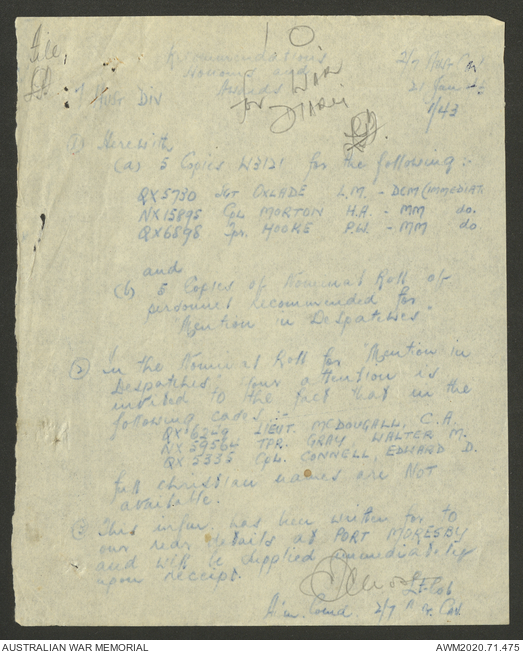 10
File
Recommendations 2/7 Aust Cav
Honours and 21 Jan 43
Awards
7 Aust Div for WAR DIARY 1/43
(1) Herewith
(a) 5 Copies W3121 for the following :-
QX5730 Sgt OXLADE L.M. - DCM (IMMEDIATE
NX15895 Cpl MORTON, H.A. - MM do.
QX6898 Tpr. HOOKE P.W. - MM do
and
(b) 5 Copies of Nominal Roll of
personnel recommended for
"Mention in Despatches."
(2) In the Nominal Roll for "Mention in
Despatches" your attention is
invited to the fact that in the
following cases :-
QX6249 LIEUT. MCDOUGALL, C.A.
NX59564 TPR. GRAY WALTER M.
QX5335 CPL. CONNELL, EDWARD D.
full christian names are NOT
available.
(3) This infor. has been written for to
our rear details at PORT MORESBY
and will be supplied immediately
upon receipt.
Lt Col
Adm. Comd 2/7 A. Cav
AUSTRALIAN WAR MEMORIAL AWM2020.71.475